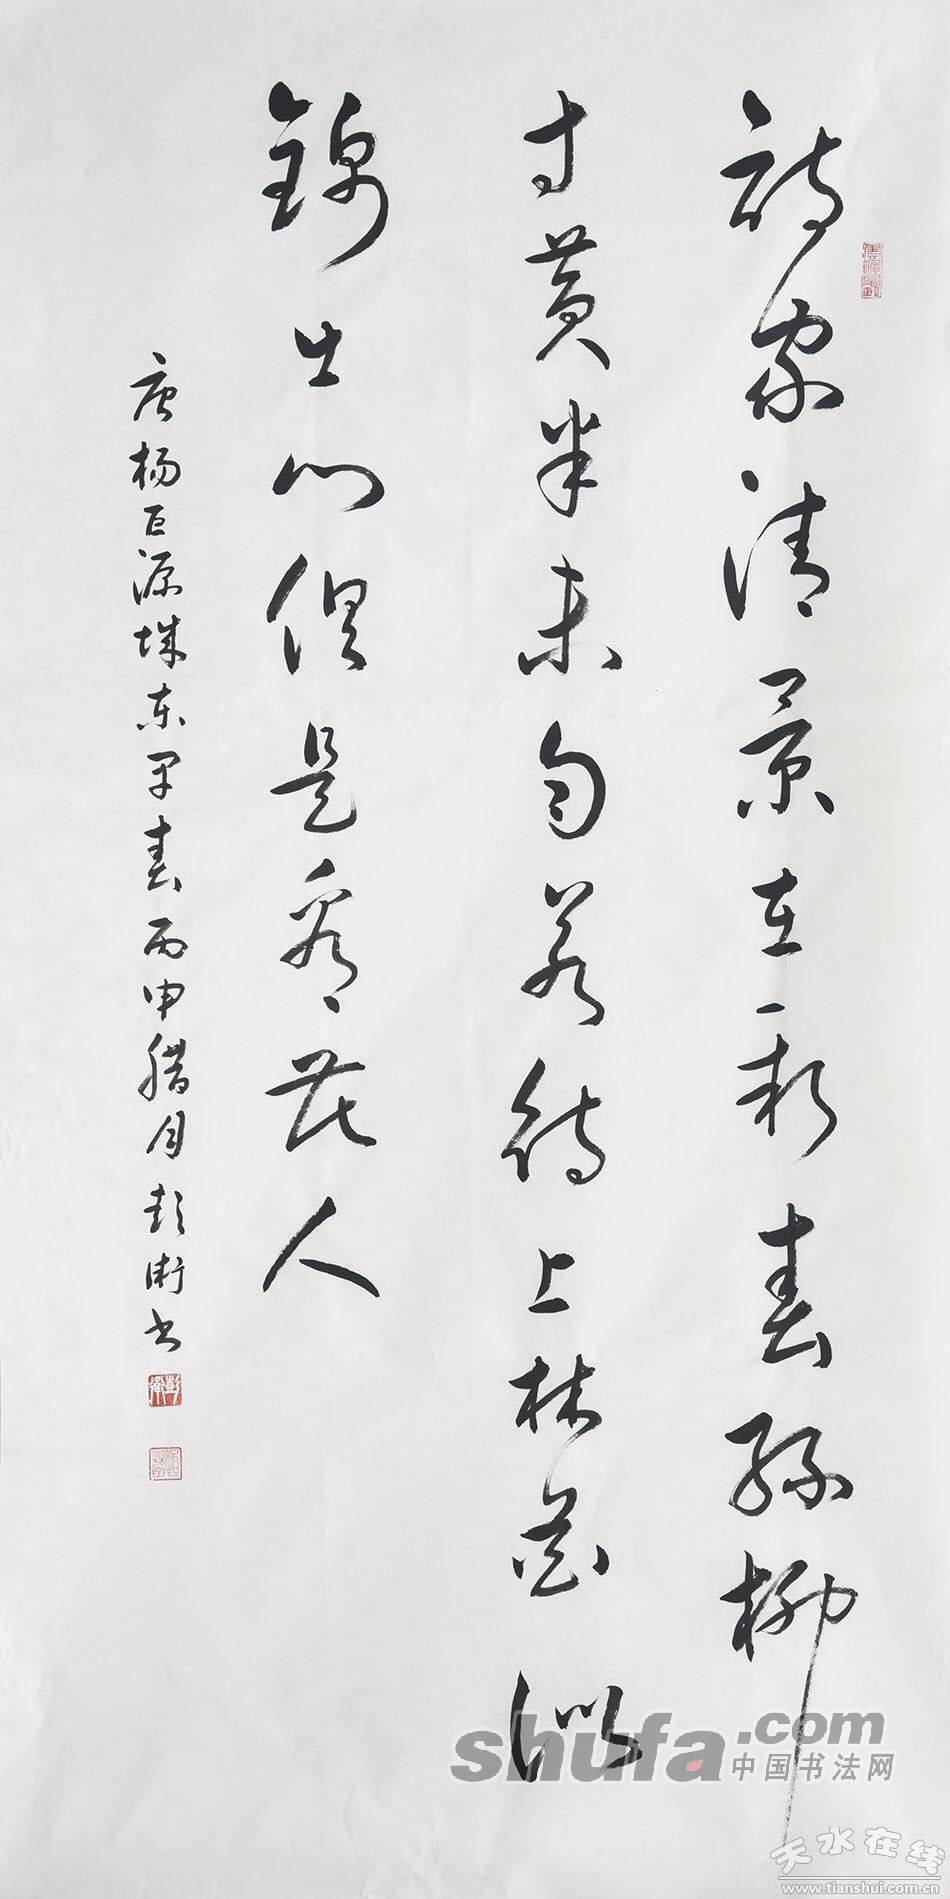 诗家清景在新春绿柳
才黄半未匀若待上林花似
锦出门俱是看花人
唐杨巨源城东早春丙申腊月彭卫书
shufa.com
中国书法网
天水在线
www.tianshui.com.cn